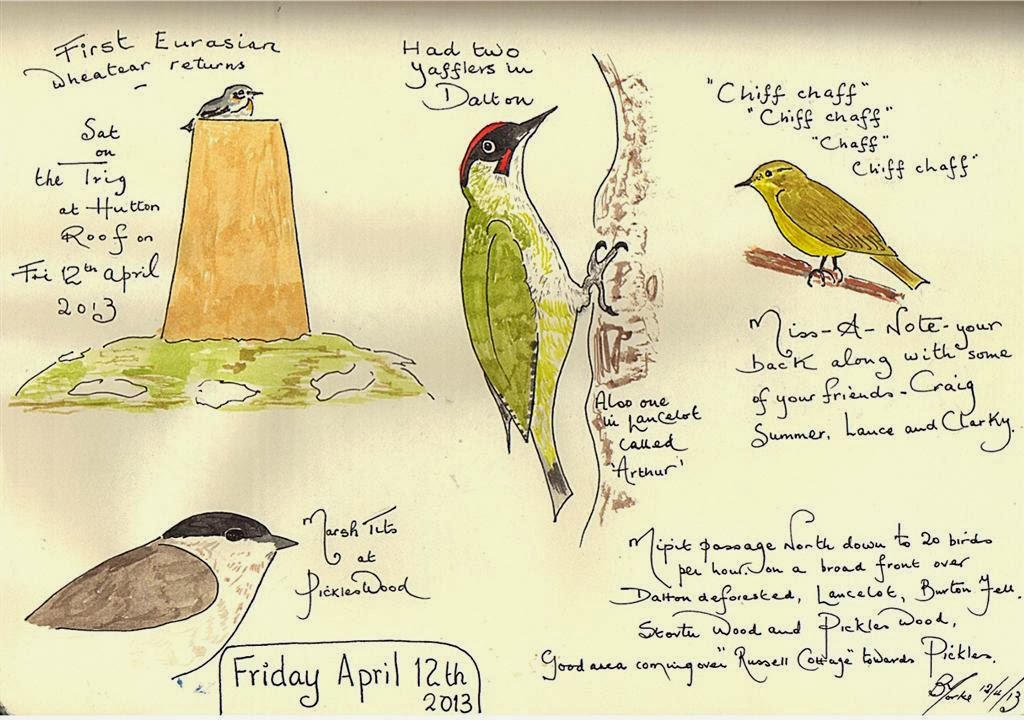 First Eurasian
Wheatear returns
Sat
on
the Trig
at Hutton
Roof on
Fri 12th April
2013
Had two
Yafflers in
Dalton
"Chiff chaff"
"Chiff chaff"
"Chaff"
Chiff chaff"
Miss-A-Note-your
back along with some
of your friends - Craig
Summer, Lance and Clarky.
Also one
in Lancelot
called
'Arthur'
Marsh Tits
at
Pickles Wood
Mipit passage North down to 20 birds
per hour. on a broad front over
Dalton deforested, Lancelot, Burton Fell.
Storth Wood and Pickles Wood,
Good area coming over "Russell Cottage" towards Pickles.
Friday April 12th
2013
BYorke 12/4/13